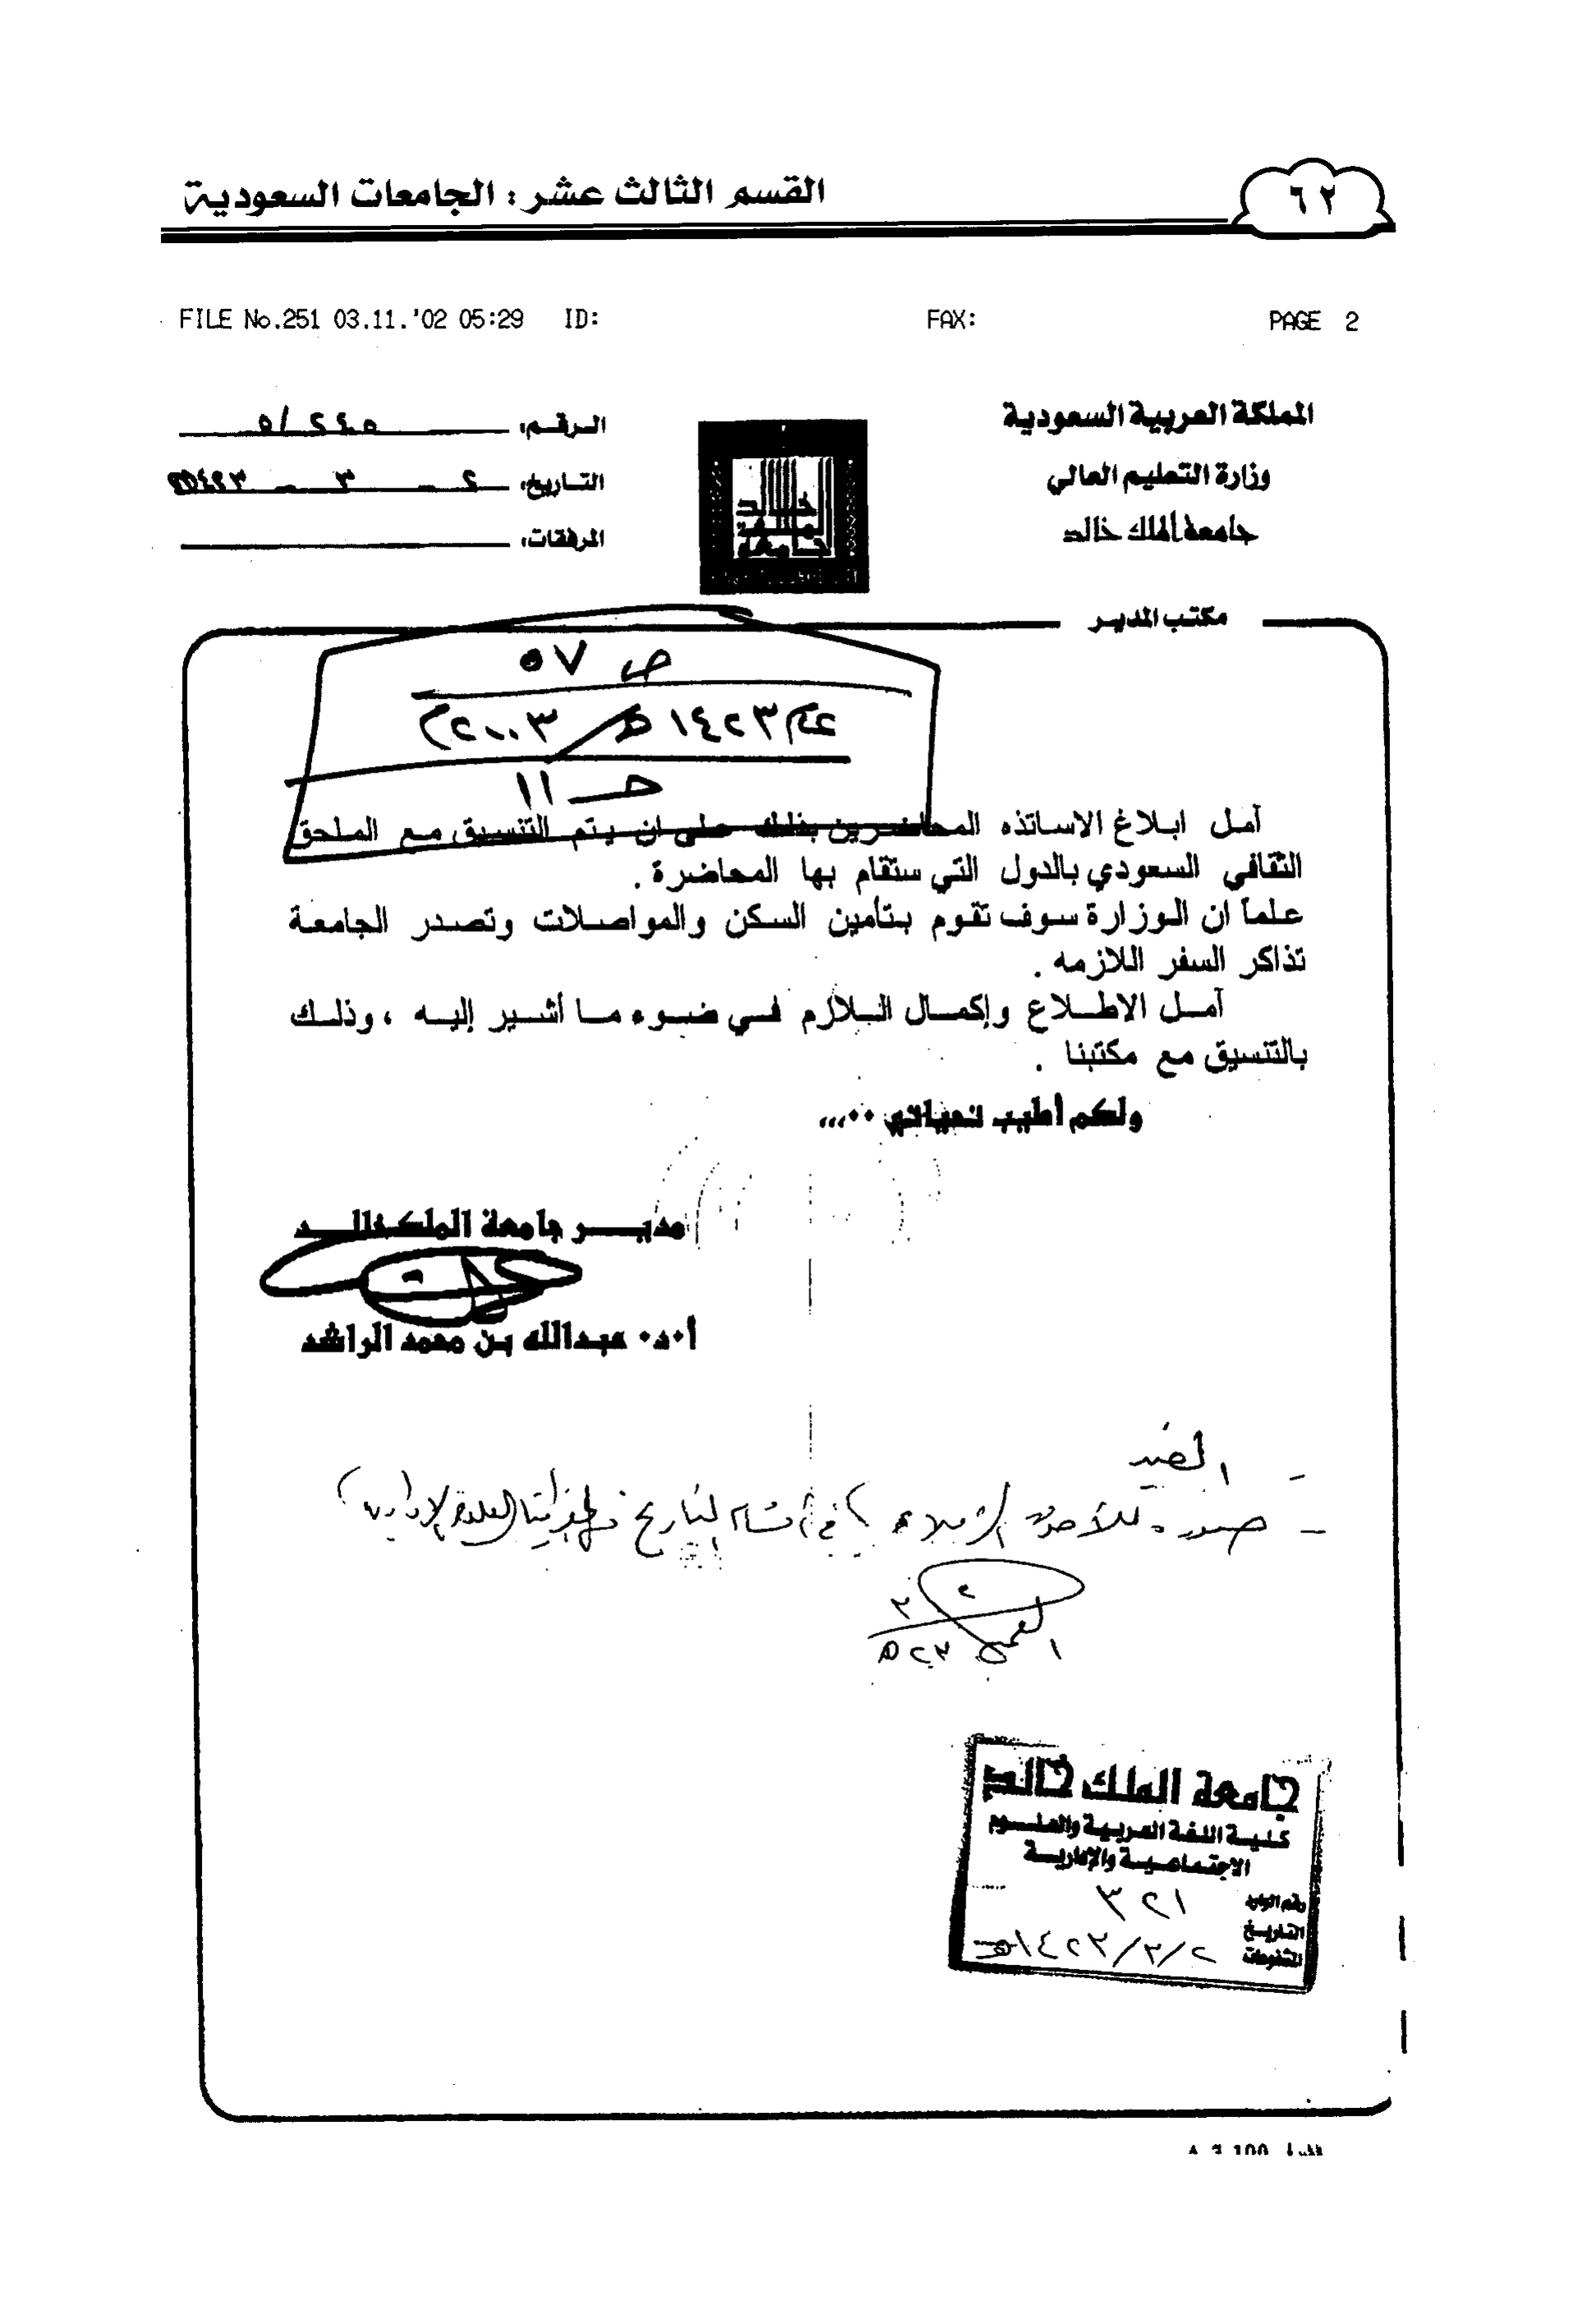 القسم الثالث عشر: الجامعات السعودية
٦٢
FILE No.251 03.11.'02 05:29 ID: FAX: PAGE 2
المملكة العربية السعودية
وزارة التعليم العالي
جامعة الملك خالد
مكتب المدير
الرقم: ٥/٢٤٥
التاريخ: ٢ - ٣ -
المرفقات:
خالد
الملك
جامعة
ص ٥٧
عام ١٤٢٣هـ / ٢٠٠٣م
حـ ١١
آمل ابلاغ الاساتذه المحاضرين بذلك على ان يتم التنسيق مع الملحق
الثقافي السعودي بالدول التي ستقام بها المحاضرة .
علماً ان الوزارة سوف تقوم بتأمين السكن والمواصلات وتصدر الجامعة
تذاكر السفر اللازمه .
آمل الاطلاع وإكمال اللازم في ضوء ما أشير إليه ، وذلك
بالتنسيق مع مكتبنا .
ولكم أطيب تحياتي ٠٠،،،
مدير جامعة الملك خالد
أ٠د٠ عبدالله بن محمد الراشد
- صورة للأخوة الزملاء في أقسام التاريخ
٢٣هـ
جامعة الملك خالد
كلية اللغة العربية والعلوم
الاجتماعية والإدارية
رقم الوارد ٣٢١
التاريخ ٢/٣/١٤٢٣هـ
المشفوعات